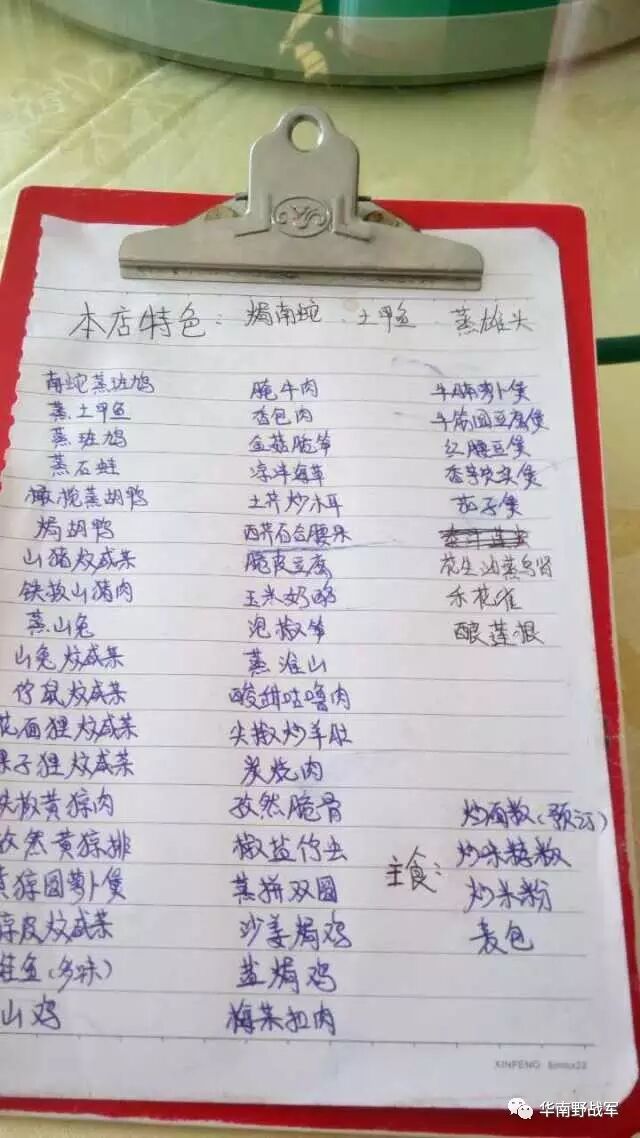 本店特色: 焗南蛇 土甲鱼 蒸雄头
南蛇蒸班鸠
蒸土甲鱼
蒸班鸠
蒸石蛙
橄榄蒸胡鸭
焗胡鸭
山猪炆咸菜
铁板山猪肉
蒸山兔
山兔炆咸菜
竹鼠炆咸菜
花面狸炆咸菜
果子狸炆咸菜
铁板黄猄肉
孜然黄猄排
黄猄圆萝卜煲
猄皮炆咸菜
鱼(多味)
山鸡
腌牛肉
香包肉
金菇脆笋
凉拌海草
土芹炒木耳
西芹百合腰果
脆皮豆腐
玉米奶酪
泡椒笋
蒸淮山
酸甜咕噜肉
尖椒炒羊肚
炭烧肉
孜然脆骨
椒盐竹虫
蒸拼双圆
沙姜焗鸡
盐焗鸡
梅菜扣肉
牛腩萝卜煲
牛筋圆豆腐煲
红腰豆煲
香芋芡实煲
茄子煲
花生油蒸乌肾
禾花雀
酿莲根
主食:
炒面散(预订)
炒味糍粑
炒米粉
麦包
XINFENG
华南野战军